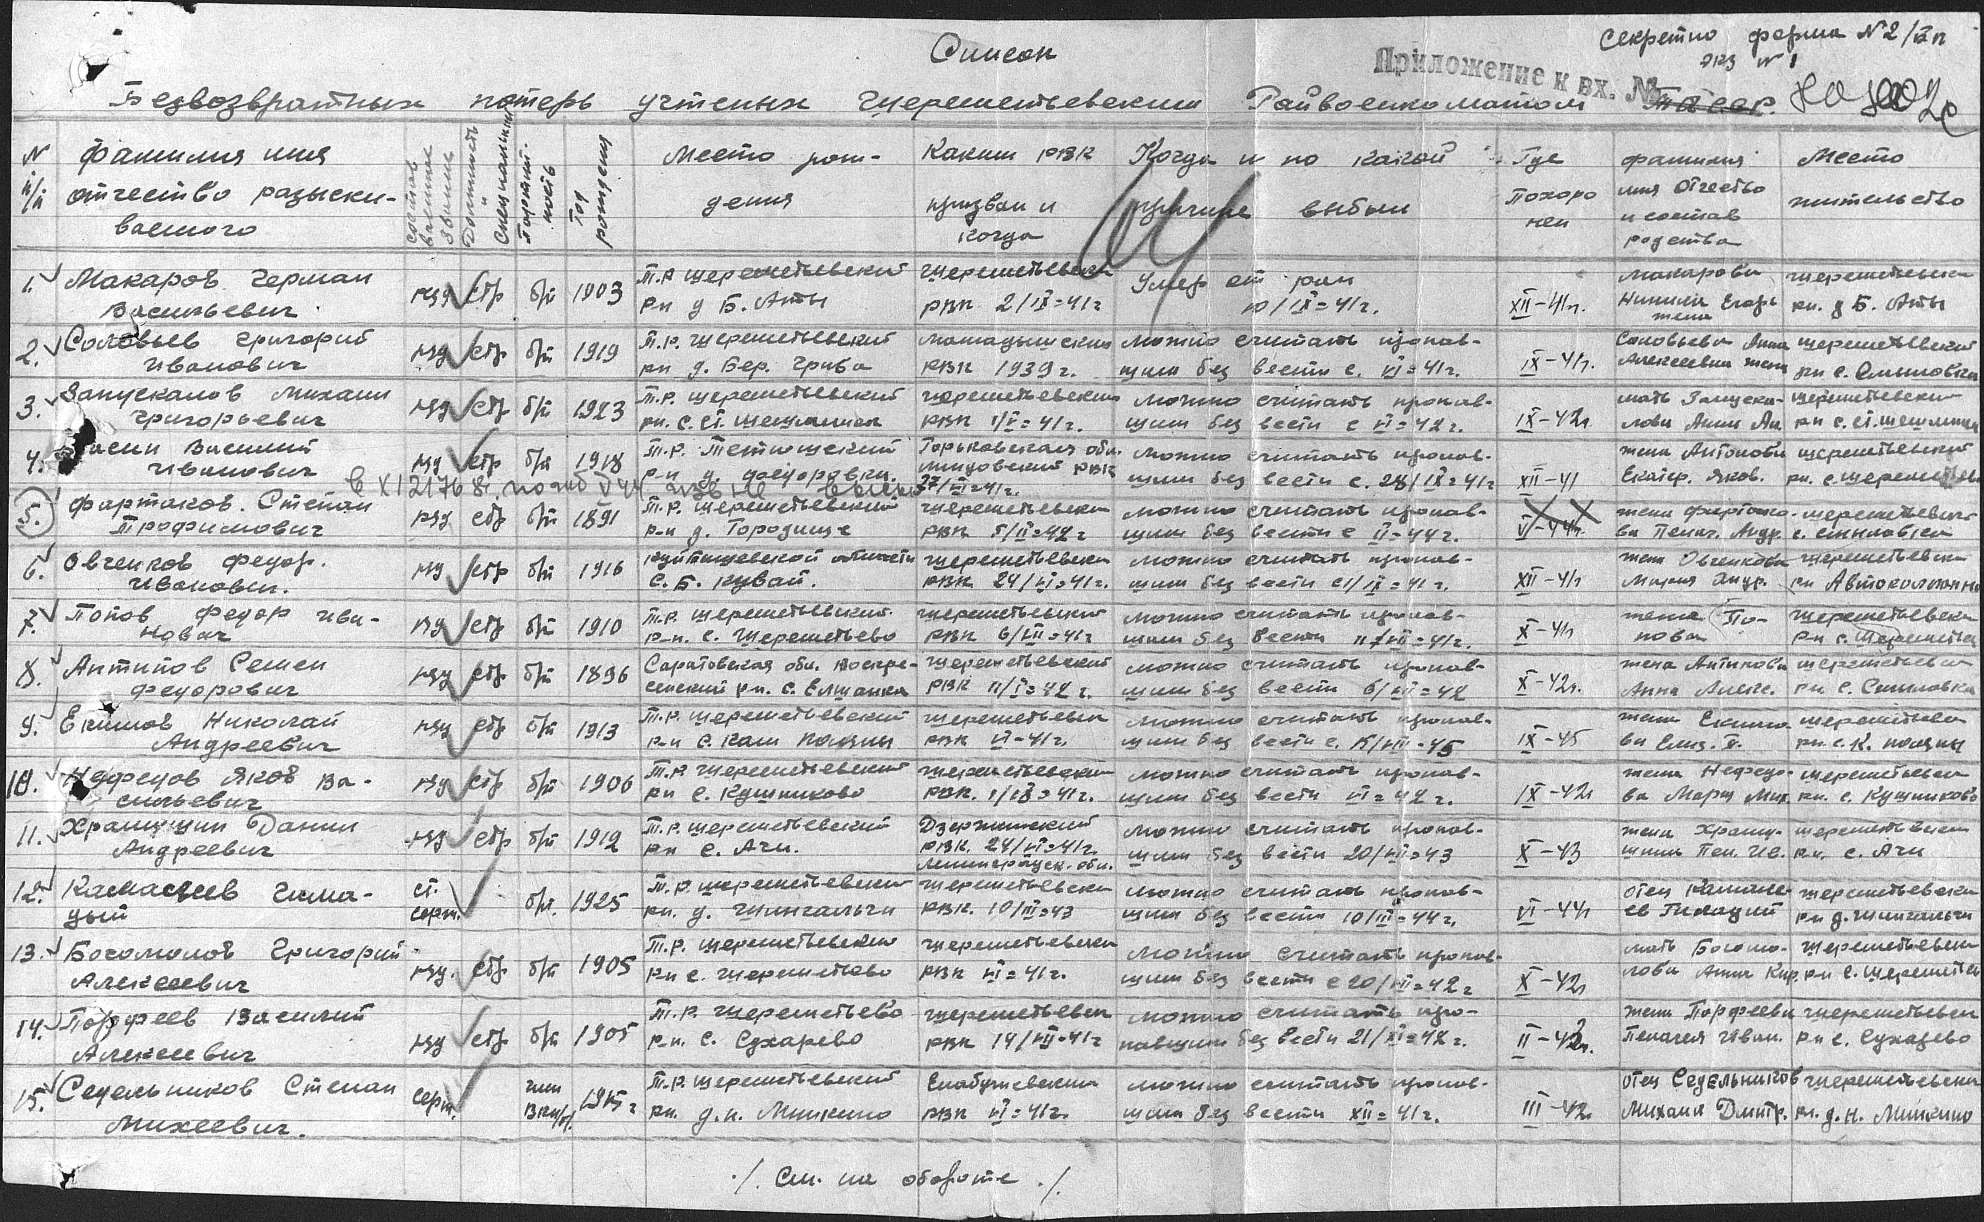 Секретно форма №2/
экз №1
Список
Приложение к вх. №
Безвозвратных потерь учтенных Шереметьевским Райвоенкоматом ТАССР.
№ п/п
фамилия имя отчество разыскиваемого
состав военное звание
Должность и специальность
Партийность
Год рождения
Место рождения
Каким РВК призван и когда
Когда и по какой причине выбыл
Где Похоронен
фамилия имя Отчество и состав родства
Место жительство
1. Макаров Герман Васильевич кр-ц стр б/п 1903 Т.Р. Шереметьевский р-н д Б. Аты Шереметьевски РВК 2/IX=41г Умер от ран 10/IX=41г. XII-41г. Макарова Егорь жена Шереметьевски рн. д Б. Аты
2. Соловьев Григорий Иванович кр-ц стр б/п 1919 Т.Р. Шереметьевский рн д. Бер. Грива Мамадышским РВК 1939г. можно считать пропавшим без вести с. VI=41г. IX-41г. Соловьева Анна Алексеевна жена Шереметьевский рн с.
3. Запускалов Михаил Григорьевич кр-ц стр б/п 1923 Т.Р. Шереметьевский рн. с. Ст. Шешминск Шереметьевским РВК можно считать пропавшим без вести с VI=42г. IX-42г мать Запускалова Анна Ан. Шереметьевски рн с. Ст. Шешминск
4. Василий Иванович кр-ц стр б/п 1918 Т.Р. Тетюшский р-н д. Федоровка Горьковская обл. РВК можно считать пропавшим без вести с. 28/IX=41г XII-41 жена Антонова Екатер. Яков. Шереметьевский рн. с. Шеремет
5. Фартаков Степан Трофимович кр-ц стр б/п 1891 Т.Р. Шереметьевский р-н д. Городище Шереметьевски РВК 5/II=42г можно считать пропавшим без вести с II=44г. VI-44г. жена Фартакова Пелаг. Андр. Шереметьевск
6. Овченков Федор Иванович. кр-ц стр б/п 1916 Куйбышевской области с. Б. Кувай. Шереметьевски РВК 24/VI=41г. можно считать пропавшим без вести XII-41г жена Овченкова Мария Андр. Шереметьевски рн Автоколонна
7. Попов Федор Иванович кр-ц стр б/п 1910 Т.Р. Шереметьевский р-н. с. Шереметьево Шереметьевски РВК 6/VII=41г можно считать пропавшим без вести X-41г жена Попова Шереметьевски рн с. Шереметьев
8. Антипов Семен Федорович кр-ц стр б/п 1896 Саратовская обл. Воскресенский рн. с. Елшанка Шереметьевский РВК 11/I=42г. можно считать пропавшим без вести X-42г. жена Антипова Анна Алекс. Шереметьевски рн с.
9. Екимов Николай Андреевич кр-ц стр б/п 1913 Т.Р. Шереметьевский р-н с. Кам Поляны Шереметьевск РВК VI-41г. можно считать пропавшим без вести с. 15/VIII-45 IX-45 жена Екимова Елиз. П. Шереметьевск рн. с. К. поляны
10. Нефедов Яков Васильевич кр-ц стр б/п 1906 Т.Р. Шереметьевский рн с. Кушниково Шереметьевски РВК. 1/IX=41г. можно считать пропавшим без вести VI=42г. IX-42г жена Нефедова Мария Мих. Шереметьевск рн. с. Кушниково
11. Храмушин Данил Андреевич кр-ц стр б/п 1912 Т.Р. Шереметьевский рн с. Ачи. Дзержинский РВК. 24/VI=41г. Ленинградск. обл. можно считать пропавшим без вести 20/VII=43 X-43 жена Храмушина Пел. Ив. Шереметьевски рн. с. Ачи
12. ст. серж. б/п. 1925 Т.Р. Шереметьевски рн. д. Шингальчи Шереметьевски РВК. 10/III=43 можно считать пропавшим без вести 10/III=44г. VI-44г отец Шереметьевски рн д. Шингальчи
13. Богомолов Григорий Алексеевич кр-ц. стр б/п 1905 Т.Р. Шереметьевски р-н с. Шереметьево Шереметьевски РВК VI=41г. можно считать пропавшим без вести с 20/VII=42г X-42г мать Богомолова Анна Кир. Шереметьевск рн с. Шереметьев
14. Парфеев Василий Алексеевич кр-ц стр б/п 1905 Т.Р. Шереметьево р-н. с. Сухарево Шереметьевск РВК 14/VII-41г можно считать пропавшим без вести 21/XI=42г. II-43г. жена Парфеева Пелагея Иван. Шереметьевск рн с. Сухарево
15. Седельников Степан Михеевич. серж. 1915г Т.Р. Шереметьевский рн. д. н. Мишкино Елабужским РВК VI=41г. можно считать пропавшим без вести XII=41г. III-42г отец Седельников Михаил Дмитр. Шереметьевски рн. д. н. Мишкино
./. См. на обороте ./.